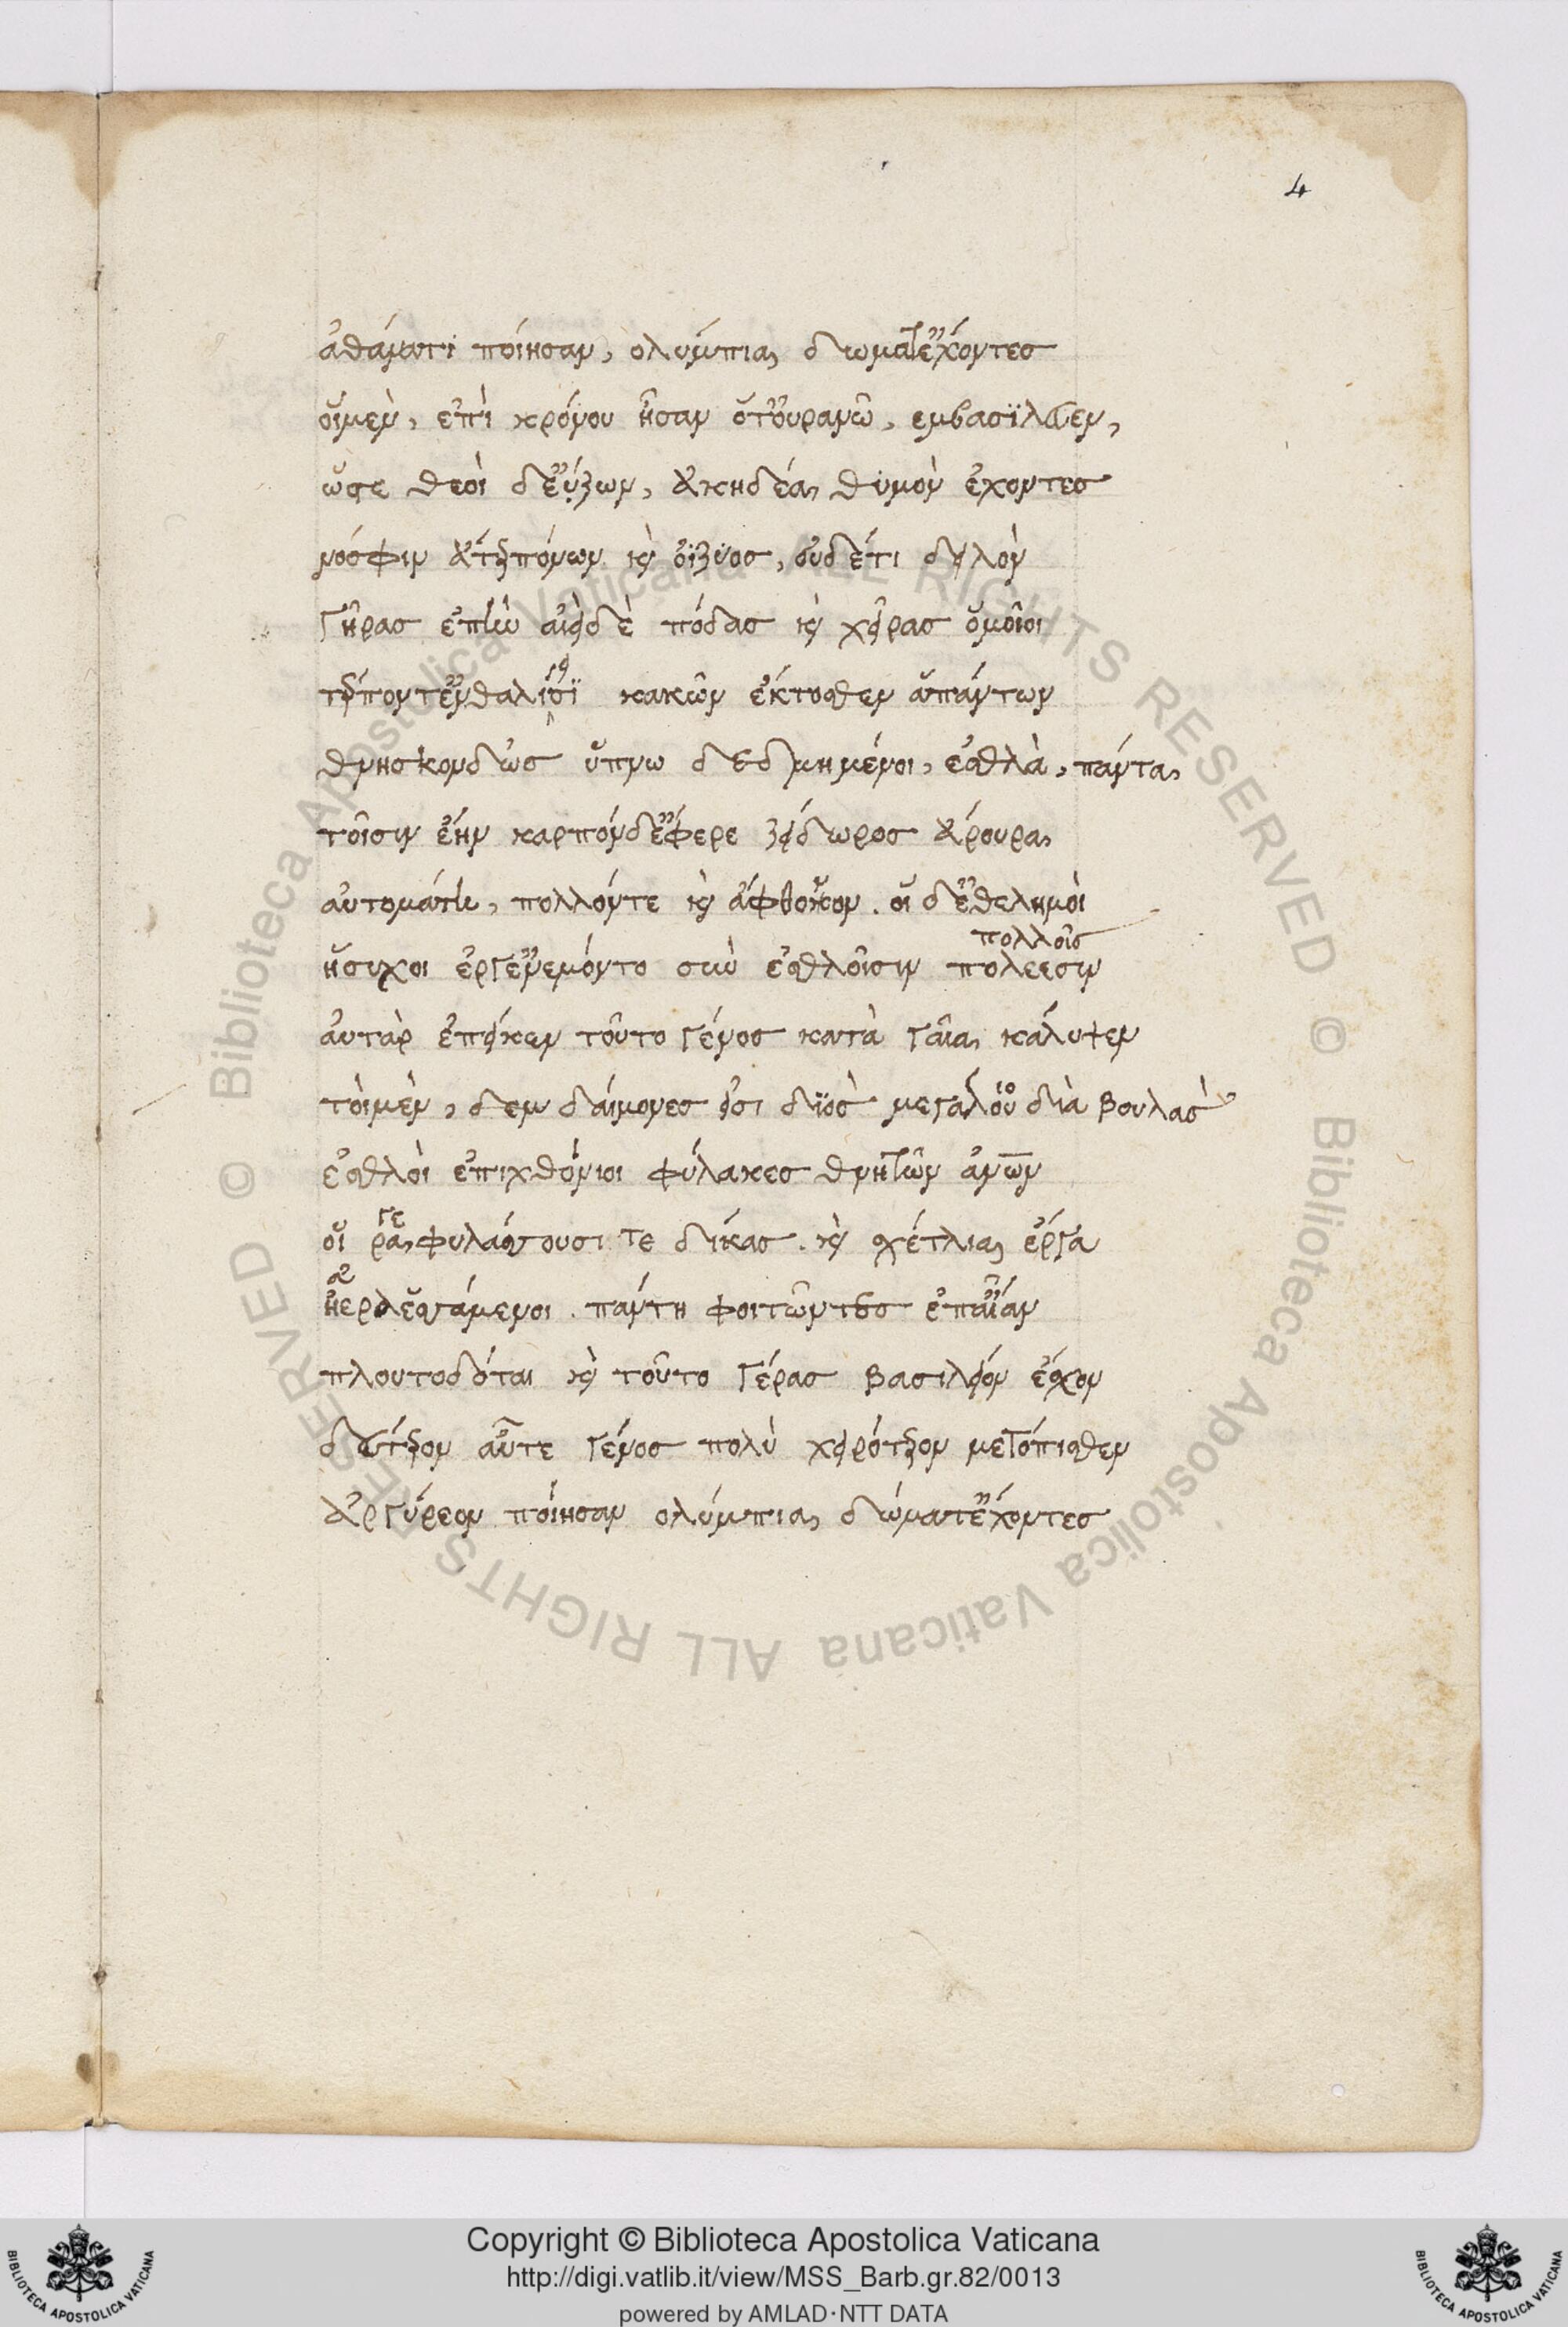 4
ἀθάνατοι ποίησαν, ολύμπια δώματ' ἔχοντες
οἵ μὲν, ἐπὶ κρόνου ἦσαν ὅτ' οὐρανῶ, εμβασΐλευεν,
ὥστε θεοὶ δ' ἔζωον, ἀκηδέα θυμὸν ἔχοντες
νόσφιν ἄτερ πόνων καὶ ὀϊζύος, οὐδέτι δειλὸν
γῆρας ἐπῆν αἰεὶ δὲ πόδας καὶ χεῖρας ὅμοῖοι
τέρποντ' ἐν θαλίῃσϊ κακῶν ἔκτοσθεν ἁπάντων
θνησκον δ' ὡς ὕπνω δεδμημένοι, ἐσθλὰ, πάντα
τοῖσιν ἔην καρπόν δ' ἔφερε ζείδωρος ἄρουρα
αὐτομάτη, πολλόντε καὶ ἄφθονον. οἵ δ' ἐθελημοὶ
πολλοῖς
ἥσυχοι ἔργ' ἐνεμόντο σὺν ἐσθλοῖσιν πολεεσιν
ἀυτὰρ ἐπείκεν τοῦτο γένος κατὰ γαῖα κάλυψεν
τοὶ μὲν, δεμ δαίμονες εἰσι διὸς μεγαλου διὰ βουλὰς
ἐσθλοὶ ἐπιχθόνιοι φύλακες θνητῶν ἀνων
γε
οἵ ρα φυλάσσουσι τε δίκας. καὶ σχέτλια ἔργα
ἠερα ἑσσάμενοι. πάντη φοιτῶντες ἐπ' αἶαν
πλουτοδόται καὶ τοῦτο γέρας βασιλείον ἔσχον
δεύτερον αὖτε γένος πολὺ χειρότερον μετόπισθεν
ἀργύρεον ποίησαν ολύμπια δώματ' ἔχοντες
© Biblioteca Apostolica Vaticana ALL RIGHTS RESERVED © Biblioteca Apostolica Vaticana ALL RIGHTS RESERVED
Copyright © Biblioteca Apostolica Vaticana
http://digi.vatlib.it/view/MSS_Barb.gr.82/0013
powered by AMLAD·NTT DATA
BIBLIOTECA APOSTOLICA VATICANA
BIBLIOTECA APOSTOLICA VATICANA